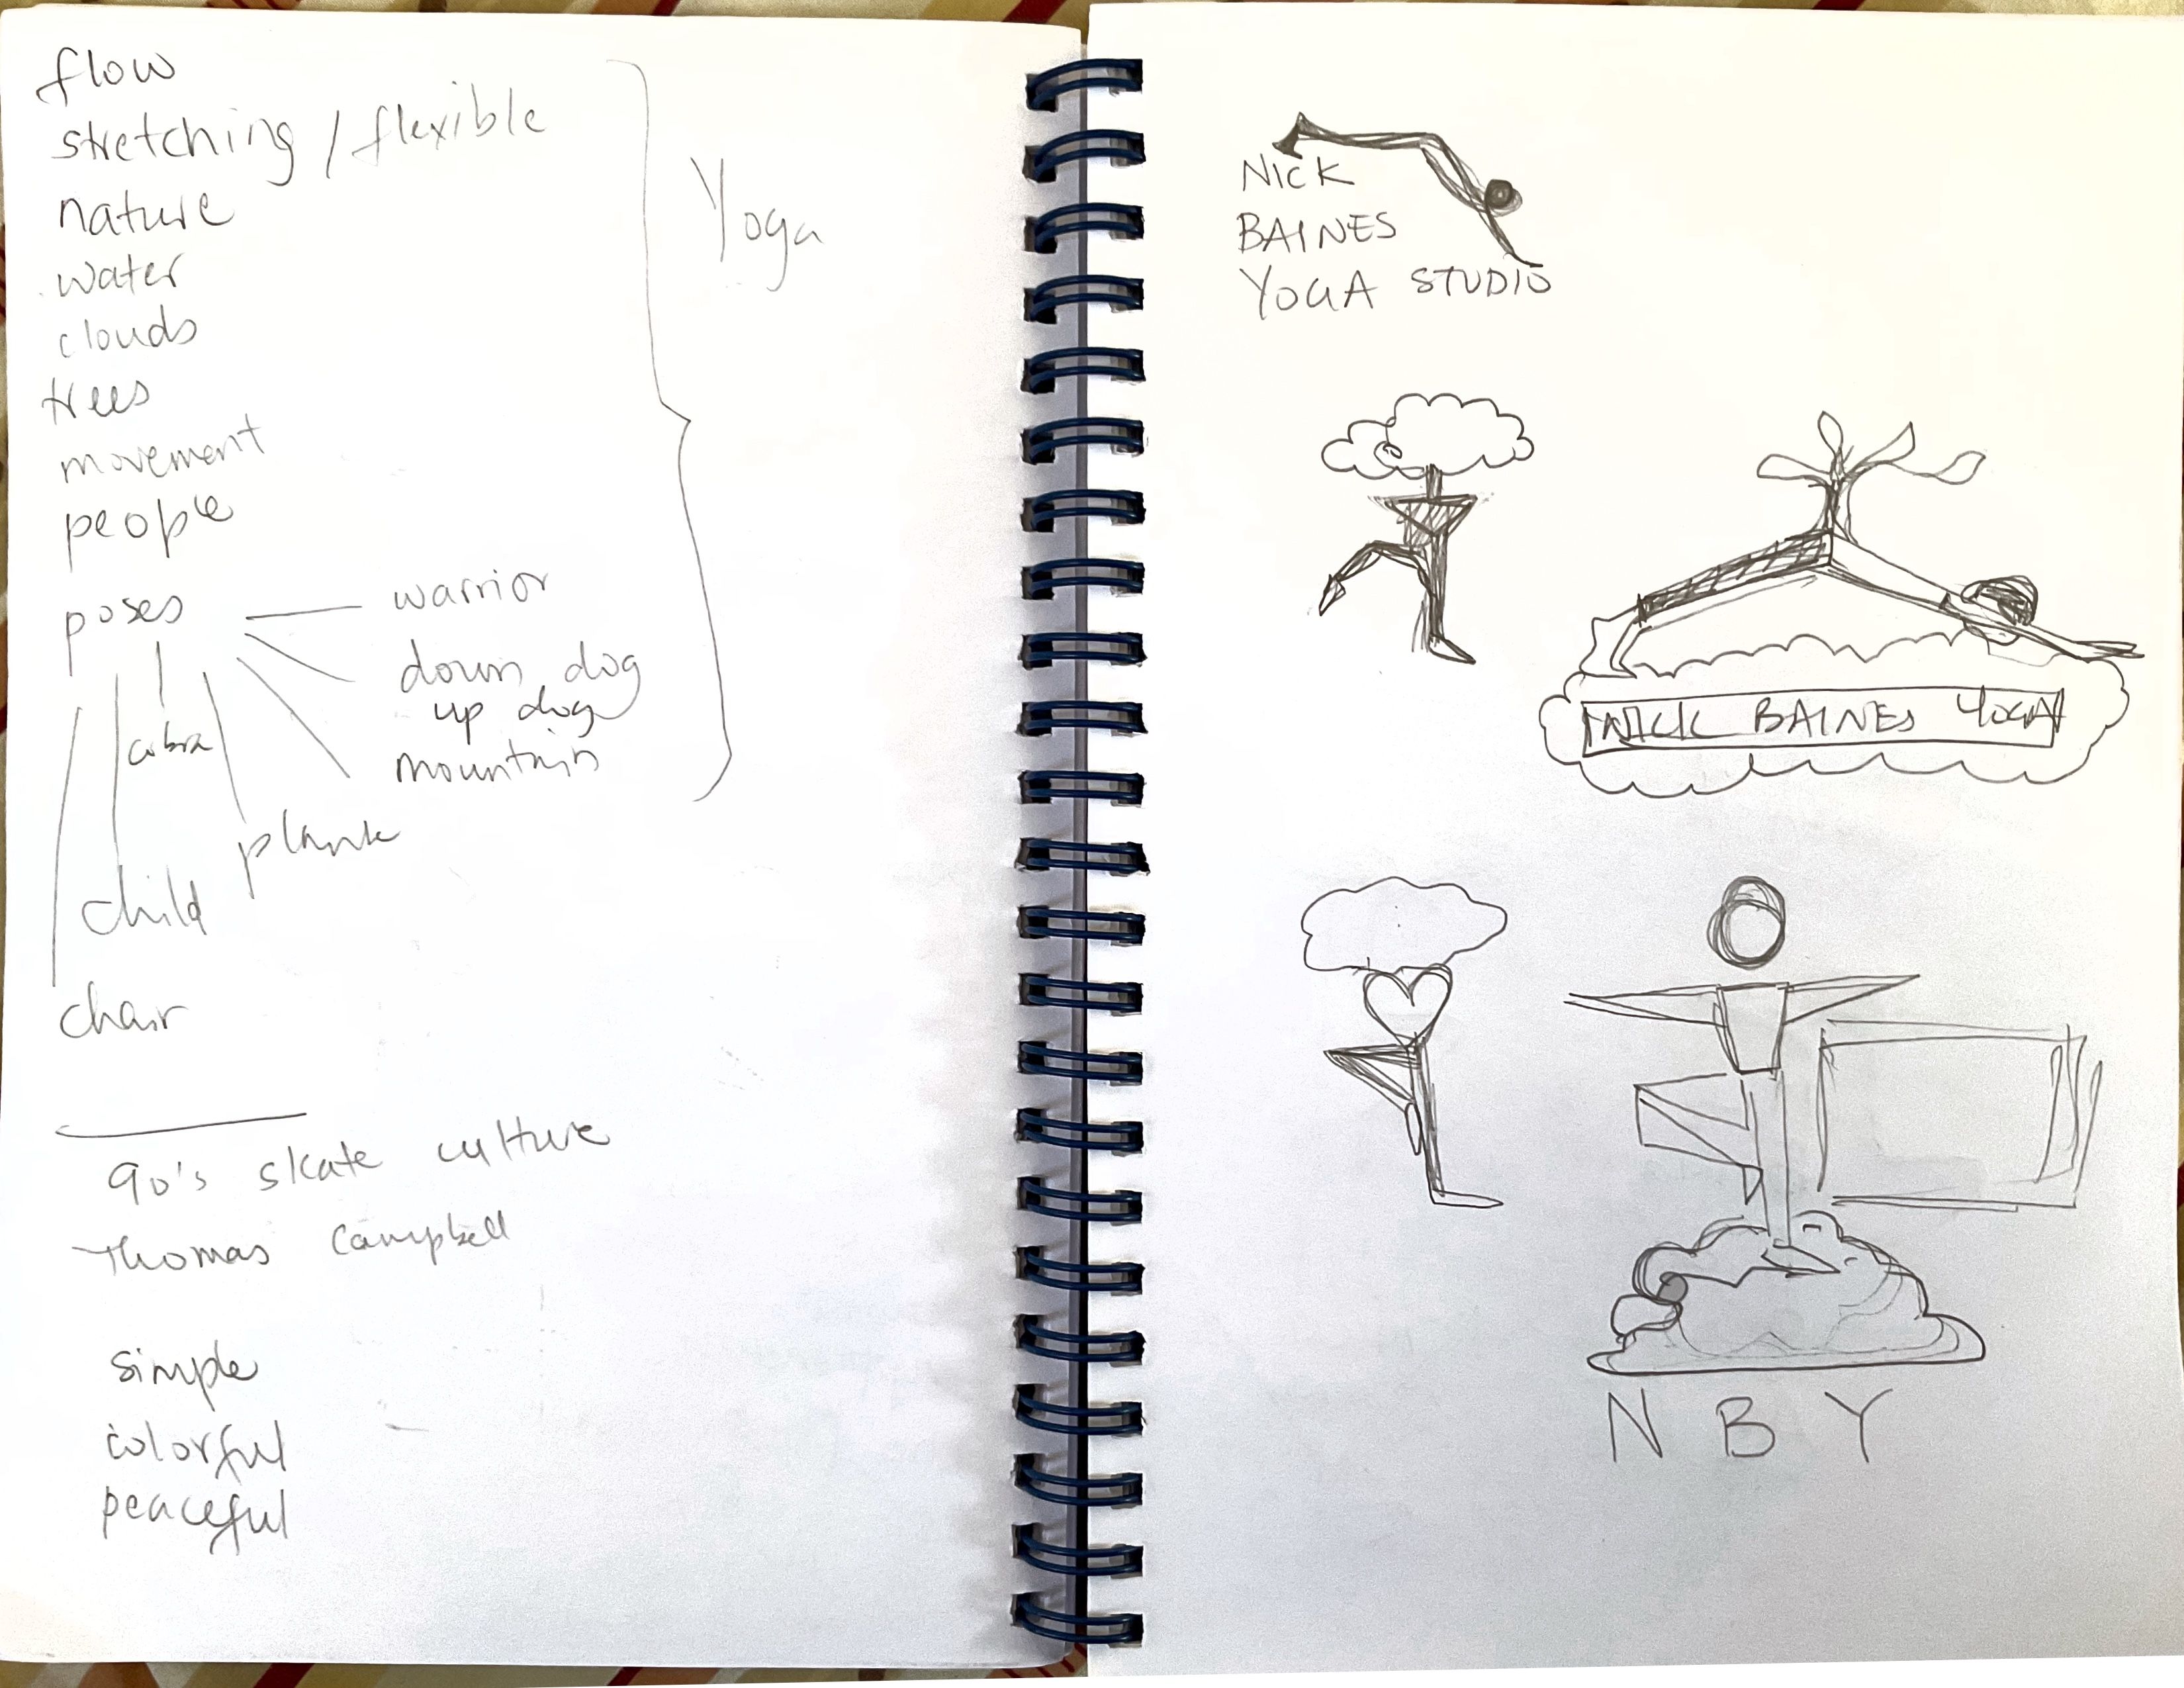 flow
stretching / flexible
nature
water
clouds
trees
movement
people
poses
warrior
down dog
up dog
mountain
cobra
plank
child
chair
Yoga
90's skate culture
Thomas Campbell
simple
colorful
peaceful
NICK
BAINES
YOGA STUDIO
NICK BAINES YOGA
N B Y